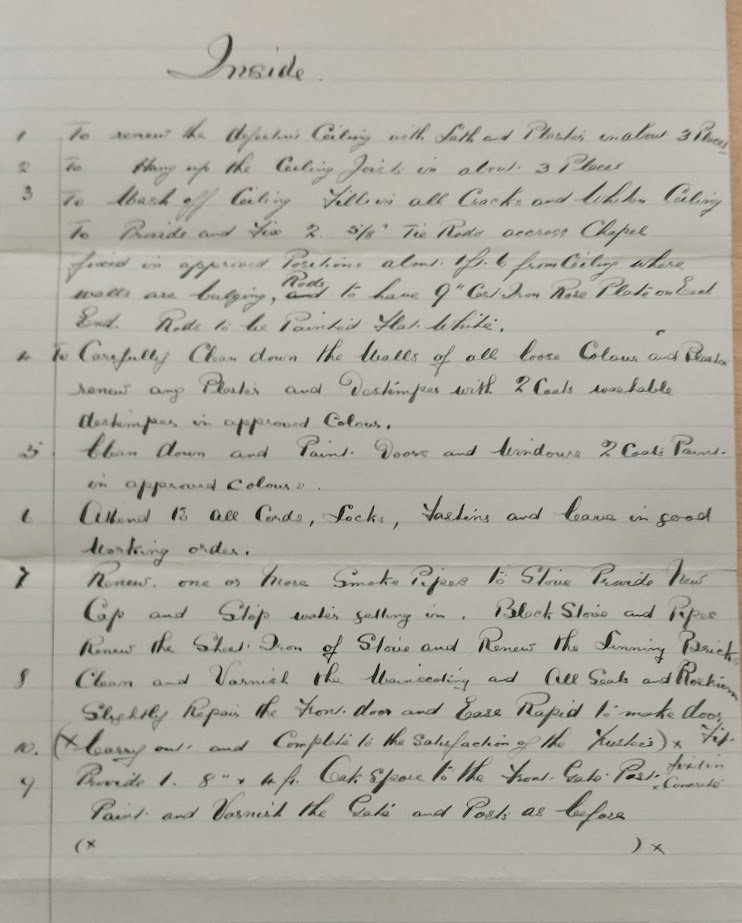 Inside.
1 To renew the defective Ceiling with Lath and Plaster in about 3 Places
2 To Hang up the Ceiling Joists in about 3 Places
3 To Wash off Ceiling Fill in all Cracks and Whiten Ceiling
To Provide and Fix 2. 5/8" Tie Rods accross Chapel
fixed in approved Positions about 1ft. 6 from Ceiling where
walls are bulging, Rods and to have 9" Cast Iron Rose Plate on Each
End. Rods to be Painted Flat White.
4 To Carefully Clean down the Walls of all loose Colour and Plaster
renew any Plaster and Destemper with 2 Coats washable
destemper in approved Colour.
5 Clean down and Paint Doors and Windows 2 Coats Paint.
in approved colours.
6 Attend to all Cords, Locks, Fastins and leave in good
Working order.
7 Renew. one or More Smoke Pipes to Stove Provide New
Cap and Stop water getting in. Black Stove and Pipes
Renew the Sheet Iron of Stove and Renew the Linning Bricks
8 Clean and Varnish the Wainscoting and All Seats and Rostrum
Slightly Repair the Front door and Ease Rapid to make door
10. (x Carry out and Complete to the Satisfaction of the Trustees) x Fit.
9 Provide 1. 8" x 4 ft. Oak Spore to the Front Gate Post. fixd in
x Concrete
Paint and Varnish the Gate and Posts as before
(x ) x